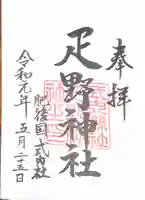 奉拝
疋野神社
肥後国 式内社
令和元年 五月二十五日